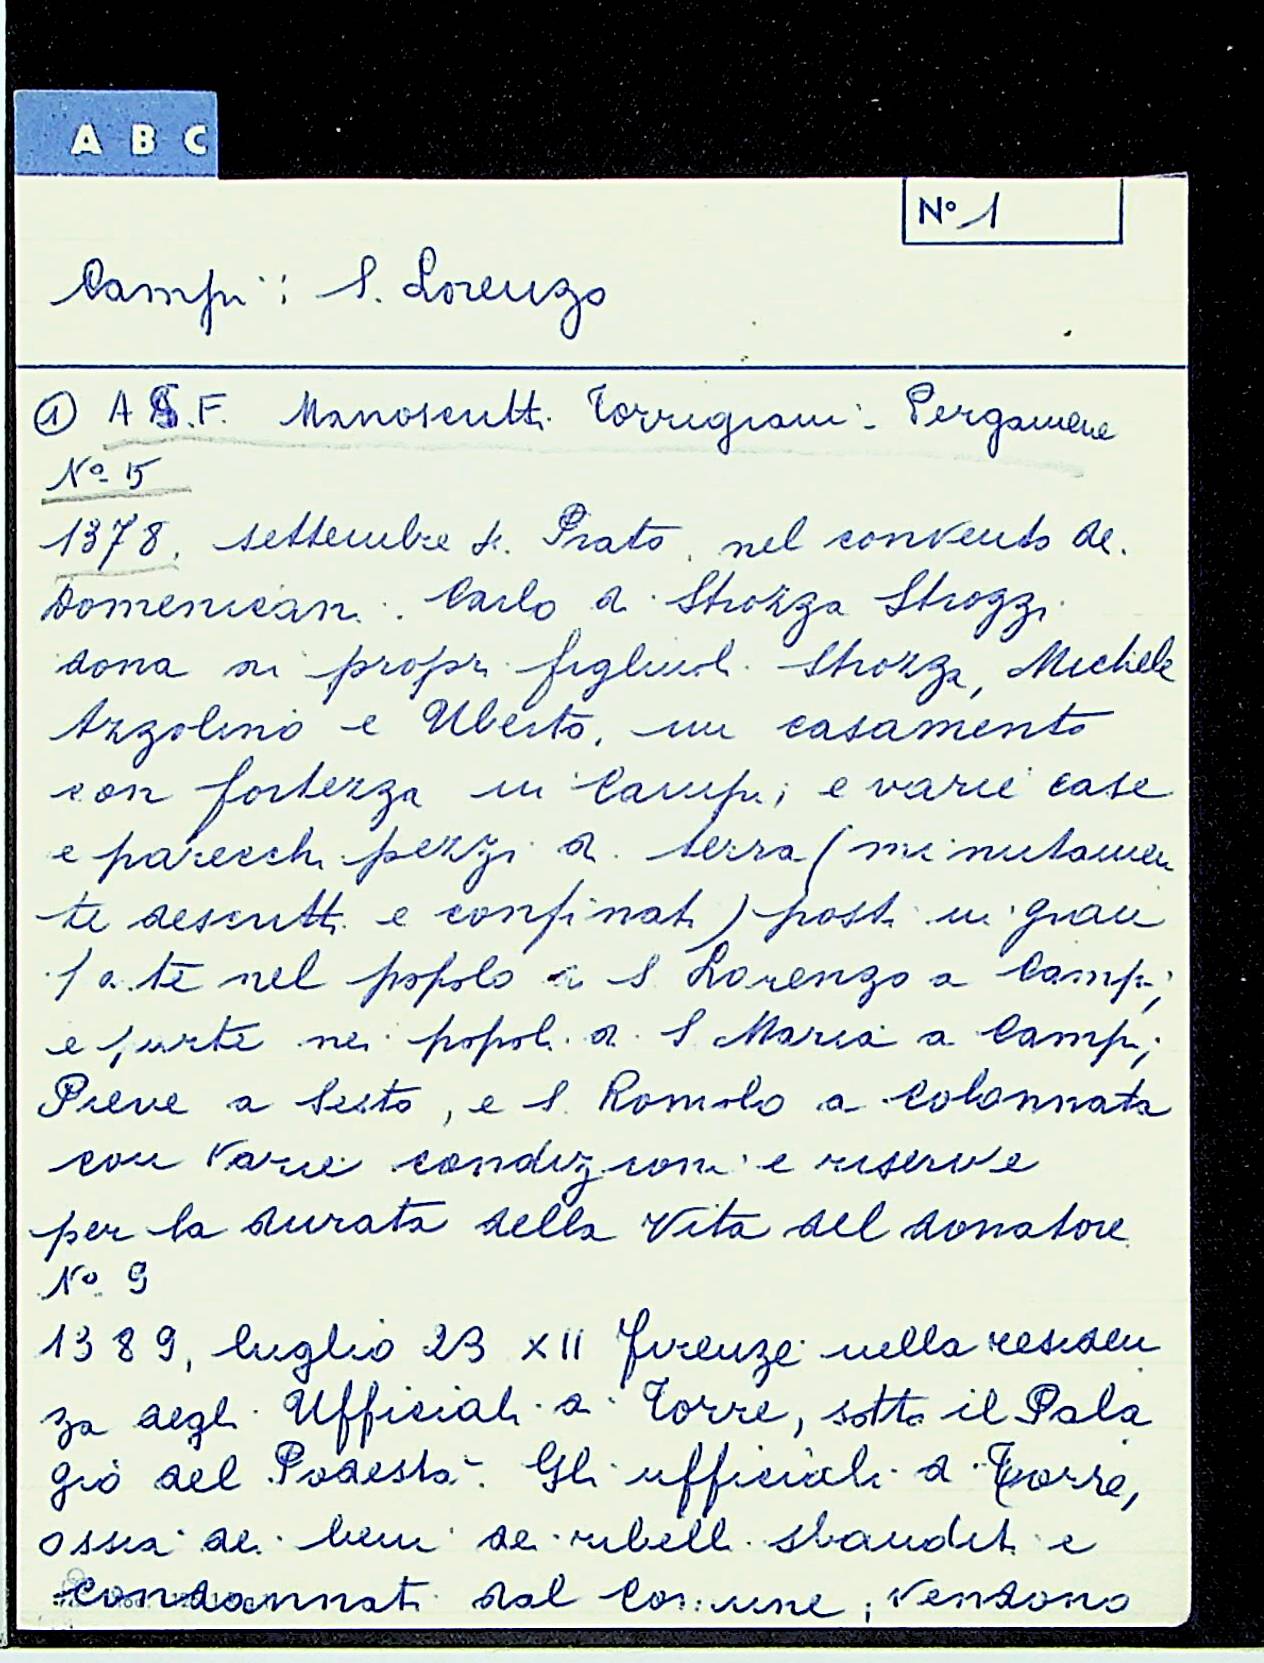 A B C
N° 1
Campi: S. Lorenzo
① A.S.F. Manoscritti Torrigiani: Pergamene
N° 15
1378, settembre Prato, nel convento dei
Domenicani. Carlo di Strozza Strozzi
dona ai propri figliuoli Strozza, Michele
Azzolino e Uberto, un casamento
con fortezza in Campi; e varie case
e parecchi pezzi di terra (minutamen
te descritti e confinati) posti in gran
parte nel popolo di S Lorenzo a Campi;
e parte nei popoli di S Maria a Campi;
Pieve a Sesto, e S. Romolo a Colonnata
con varie condizioni e riserve
per la durata della vita del donatore.
N° 9
1389, luglio 23 XII Firenze nella residen
za degli Ufficiali di Torre, sotto il Pala
gio del Podestà. Gli ufficiali di Torre,
ossia dei beni dei ribelli sbanditi e
condannati dal Comune, vendono